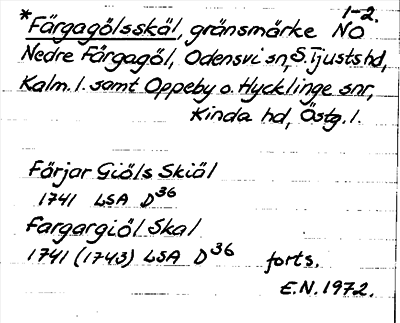 1-2.
*Färgagölsskäl, gränsmärke NO
Nedre Fårgagöl, Odensvi sn, S. Tjusts hd,
Kalm. l. samt Oppeby o. Hycklinge snr,
Kinda hd, Östg. l.
Förjar Giöls Skiäl
1741 LSA D36
Fargargiöl Skal
1741 (1743) LSA D36 forts.
E.N. 1972.